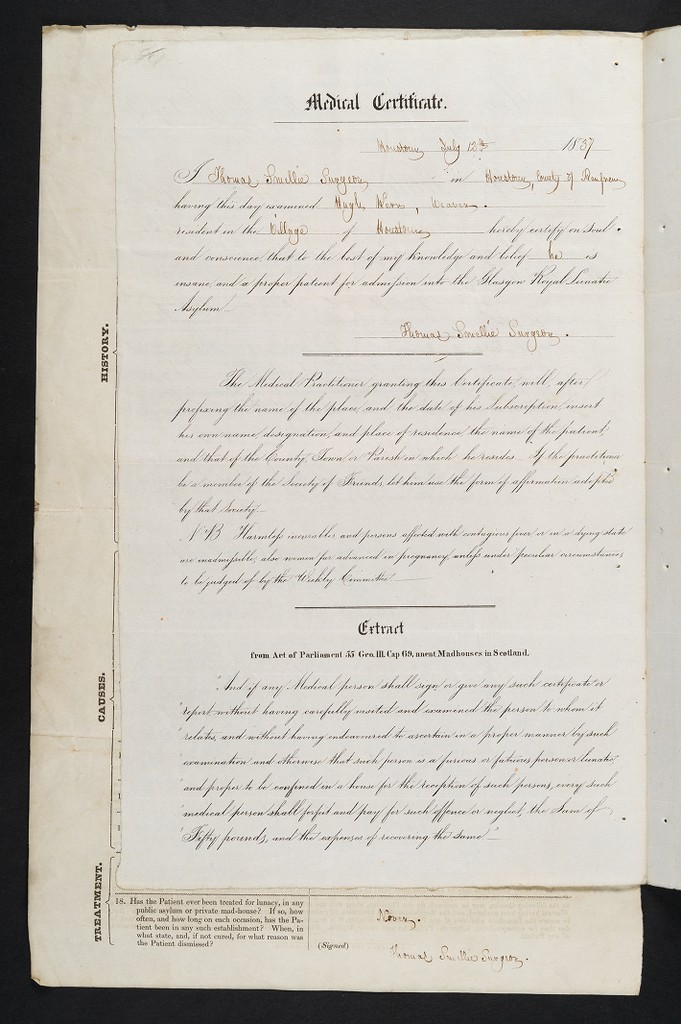 Medical Certificate.
Houston July 12th 1837
I Thomas Smellie Surgeon in Houston, County of Renfrew
having this day examined Hugh , Weaver.
resident in the Village of Houston hereby certify on soul
and conscience that to the best of my knowledge and belief he is
insane, and a proper patient for admission into the Glasgow Royal Lunatic
Asylum
Thomas Smellie Surgeon.
The Medical Practitioner granting this Certificate, will, after
prefixing the name of the place, and the date of his Subscription, insert
his own name, designation, and place of residence, the name of the patient,
and that of the County, Town or Parish in which he resides. If the practitioner
be a member of the Society of Friends, let him use the form of affirmation adopted
by that Society.
N.B. Harmless incurables and persons affected with contagious fever or in a dying state
are inadmissible, also women far advanced in pregnancy, unless under peculiar circumstances,
to be judged of by the Weekly Committee.
Extract
from Act of Parliament 55 Geo. III. Cap 69, anent Madhouses in Scotland.
"And if any Medical person shall sign or give any such certificate or
"report without having carefully visited and examined the person to whom it
"relates, and without having endeavoured to ascertain in a proper manner by such
"examination and otherwise that such person is a furious or fatuous person or lunatic,
"and proper to be confined in a house for the reception of such persons, every such
"medical person shall forfeit and pay for such offence or neglect, the Sum of
"Fifty pounds, and the expenses of recovering the same."
HISTORY.
CAUSES.
TREATMENT.
18. Has the Patient ever been treated for lunacy, in any
public asylum or private mad-house? If so, how
often, and how long on each occasion, has the Pa-
tient been in any such establishment? When, in
what state, and, if not cured, for what reason was
the Patient dismissed?
Never.
(Signed)
Thomas Smellie Surgeon.